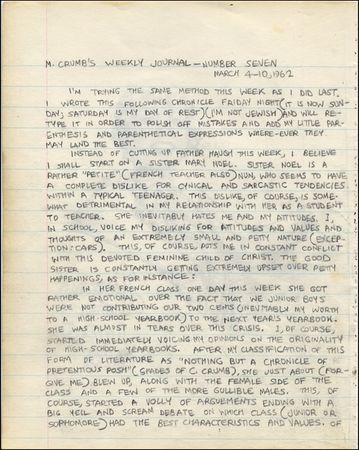 M. CRUMB'S WEEKLY JOURNAL — NUMBER SEVEN
MARCH 4-10, 1962
I'M TRYING THE SAME METHOD THIS WEEK AS I DID LAST.
I WROTE THIS FOLLOWING CHRONICLE FRIDAY NIGHT (IT IS NOW SUN-
DAY; SATURDAY IS MY DAY OF REST) (I'M NOT JEWISH) AND WILL RE-
TYPE IT IN ORDER TO POLISH OFF MISTAKES AND ADD MY LITTLE PAR-
ENTHESIS AND PARENTHETICAL EXPRESSIONS WHERE-EVER THEY
MAY LAND THE BEST.
INSTEAD OF CUTTING UP FATHER MAUGH THIS WEEK, I BELIEVE
I SHALL START ON A SISTER MARY NOEL. SISTER NOEL IS A
RATHER "PETITE" (FRENCH TEACHER ALSO) NUN, WHO SEEMS TO HAVE
A COMPLETE DISLIKE FOR CYNICAL AND SARCASTIC TENDENCIES
WITHIN A TYPICAL TEENAGER. THIS DISLIKE, OF COURSE, IS SOME-
WHAT DETRIMENTAL IN MY RELATIONSHIP WITH HER AS A STUDENT
TO TEACHER. SHE INEVITABLY HATES ME AND MY ATTITUDES. I,
IN SCHOOL, VOICE MY DISLIKING FOR ATTITUDES AND VALUES AND
THOUGHTS OF AN EXTREMELY SMALL AND PETTY NATURE (EXCEP-
TION: CARS). THIS, OF COURSE, PUTS ME IN CONSTANT CONFLICT
WITH THIS DEVOTED FEMININE CHILD OF CHRIST. THE GOOD
SISTER IS CONSTANTLY GETTING EXTREMELY UPSET OVER PETTY
HAPPENINGS, AS FOR INSTANCE:
IN HER FRENCH CLASS ONE DAY THIS WEEK SHE GOT
RATHER EMOTIONAL OVER THE FACT THAT WE JUNIOR BOYS
WERE NOT CONTRIBUTING OUR TWO CENTS (INEVITABLY MY WORTH
TO A HIGH-SCHOOL YEARBOOK) TO THE NEXT YEAR'S YEARBOOK.
SHE WAS ALMOST IN TEARS OVER THIS CRISIS. I, OF COURSE,
STARTED IMMEDIATELY VOICING MY OPINIONS ON THE ORIGINALITY
OF HIGH-SCHOOL YEARBOOKS. AFTER MY CLASSIFICATION OF THIS
FORM OF LITERATURE AS "NOTHING BUT A CHRONICLE OF
PRETENTIOUS POSH" (SHADES OF C. CRUMB), SHE JUST ABOUT (FOR-
GIVE ME) BLEW UP, ALONG WITH THE FEMALE SIDE OF THE
CLASS AND A FEW OF THE MORE GULLIBLE MALES. THIS, OF
COURSE, STARTED A VOLLY OF ARGUEMENTS ENDING WITH A
BIG YELL AND SCREAM DEBATE ON WHICH CLASS (JUNIOR OR
SOPHOMORE) HAD THE BEST CHARACTERISTICS AND VALUES. OF